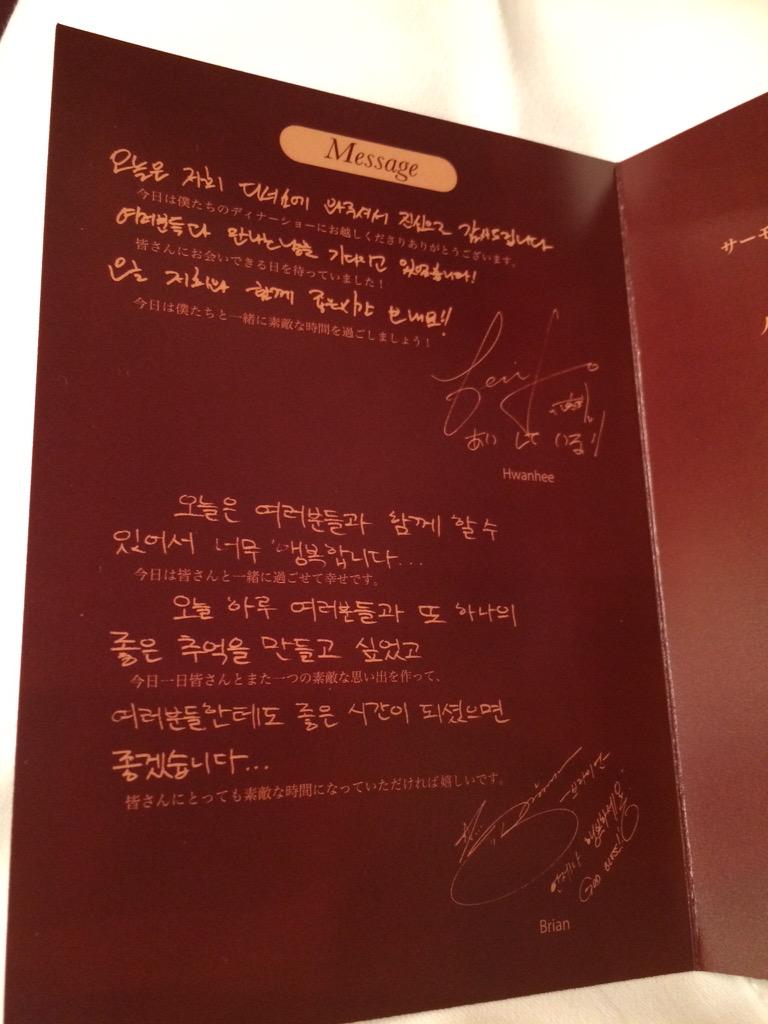 Message
오늘은 저희 디너쇼에 와주셔서 진심으로 감사드립니다
今日は僕たちのディナーショーにお越しくださりありがとうございます。
여러분들 만나는 날을 기다리고 있었습니다!
皆さんにお会いできる日を待っていました！
오늘 저희와 함께 좋은시간 보내요!!
今日は僕たちと一緒に素敵な時間を過ごしましょう！
サーモ
あいしている!!
Hwanhee
오늘은 여러분들과 함께 할 수
있어서 너무 행복합니다...
今日は皆さんと一緒に過ごせて幸せです。
오늘 하루 여러분들과 또 하나의
좋은 추억을 만들고 싶었고
今日一日皆さんとまた一つの素敵な思い出を作って、
여러분들한테도 좋은 시간이 되셨으면
좋겠습니다...
皆さんにとっても素敵な時間になっていただければ嬉しいです。
언제나 행복하세요.
GOD BLESS!
Brian